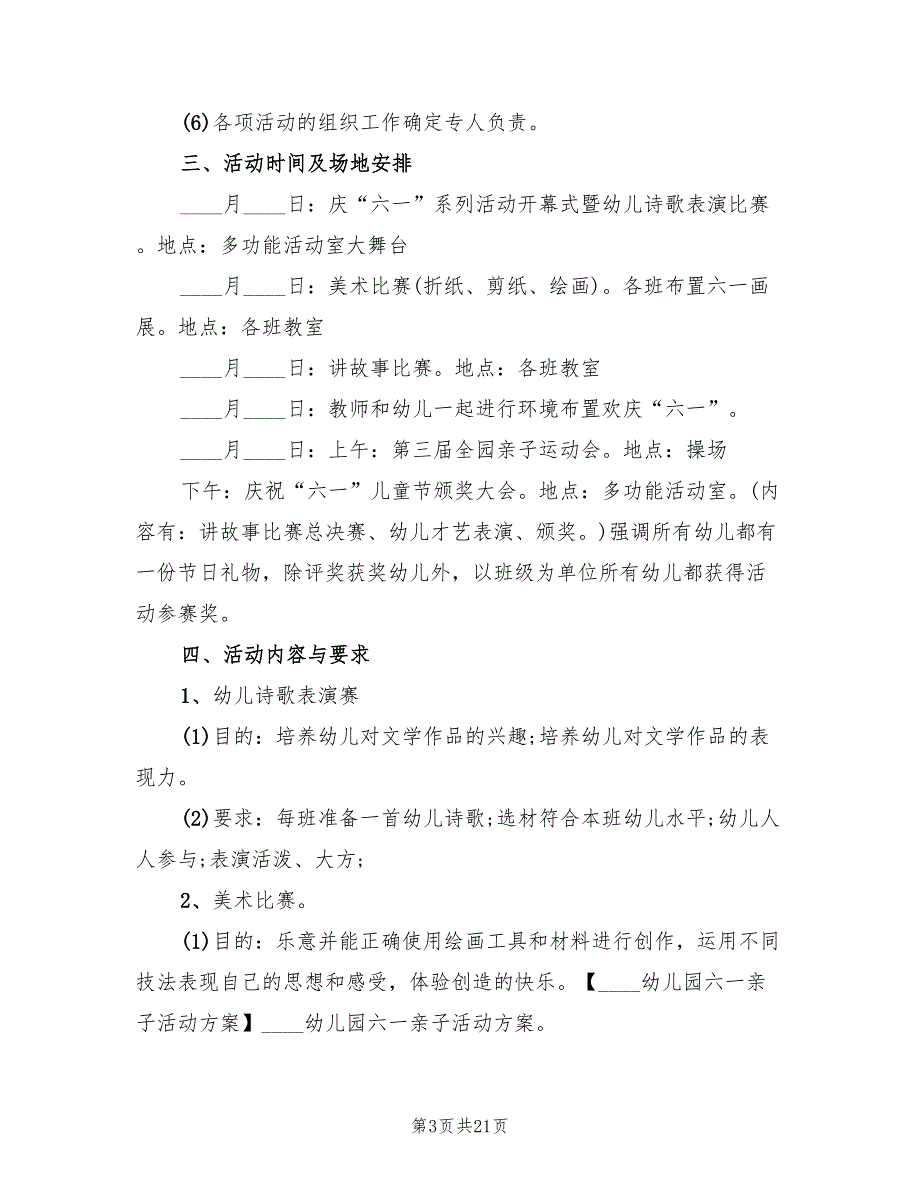 (6)各项活动的组织工作确定专人负责。
三、活动时间及场地安排
____月____日：庆“六一”系列活动开幕式暨幼儿诗歌表演比赛
。地点：多功能活动室大舞台
____月____日：美术比赛(折纸、剪纸、绘画)。各班布置六一画
展。地点：各班教室
____月____日：讲故事比赛。地点：各班教室
____月____日：教师和幼儿一起进行环境布置欢庆“六一”。
____月____日：上午：第三届全园亲子运动会。地点：操场
下午：庆祝“六一”儿童节颁奖大会。地点：多功能活动室。(内
容有：讲故事比赛总决赛、幼儿才艺表演、颁奖。)强调所有幼儿都有
一份节日礼物，除评奖获奖幼儿外，以班级为单位所有幼儿都获得活
动参赛奖。
四、活动内容与要求
1、幼儿诗歌表演赛
(1)目的：培养幼儿对文学作品的兴趣;培养幼儿对文学作品的表
现力。
(2)要求：每班准备一首幼儿诗歌;选材符合本班幼儿水平;幼儿人
人参与;表演活泼、大方;
2、美术比赛。
(1)目的：乐意并能正确使用绘画工具和材料进行创作，运用不同
技法表现自己的思想和感受，体验创造的快乐。【____幼儿园六一亲
子活动方案】____幼儿园六一亲子活动方案。
第3页共21页